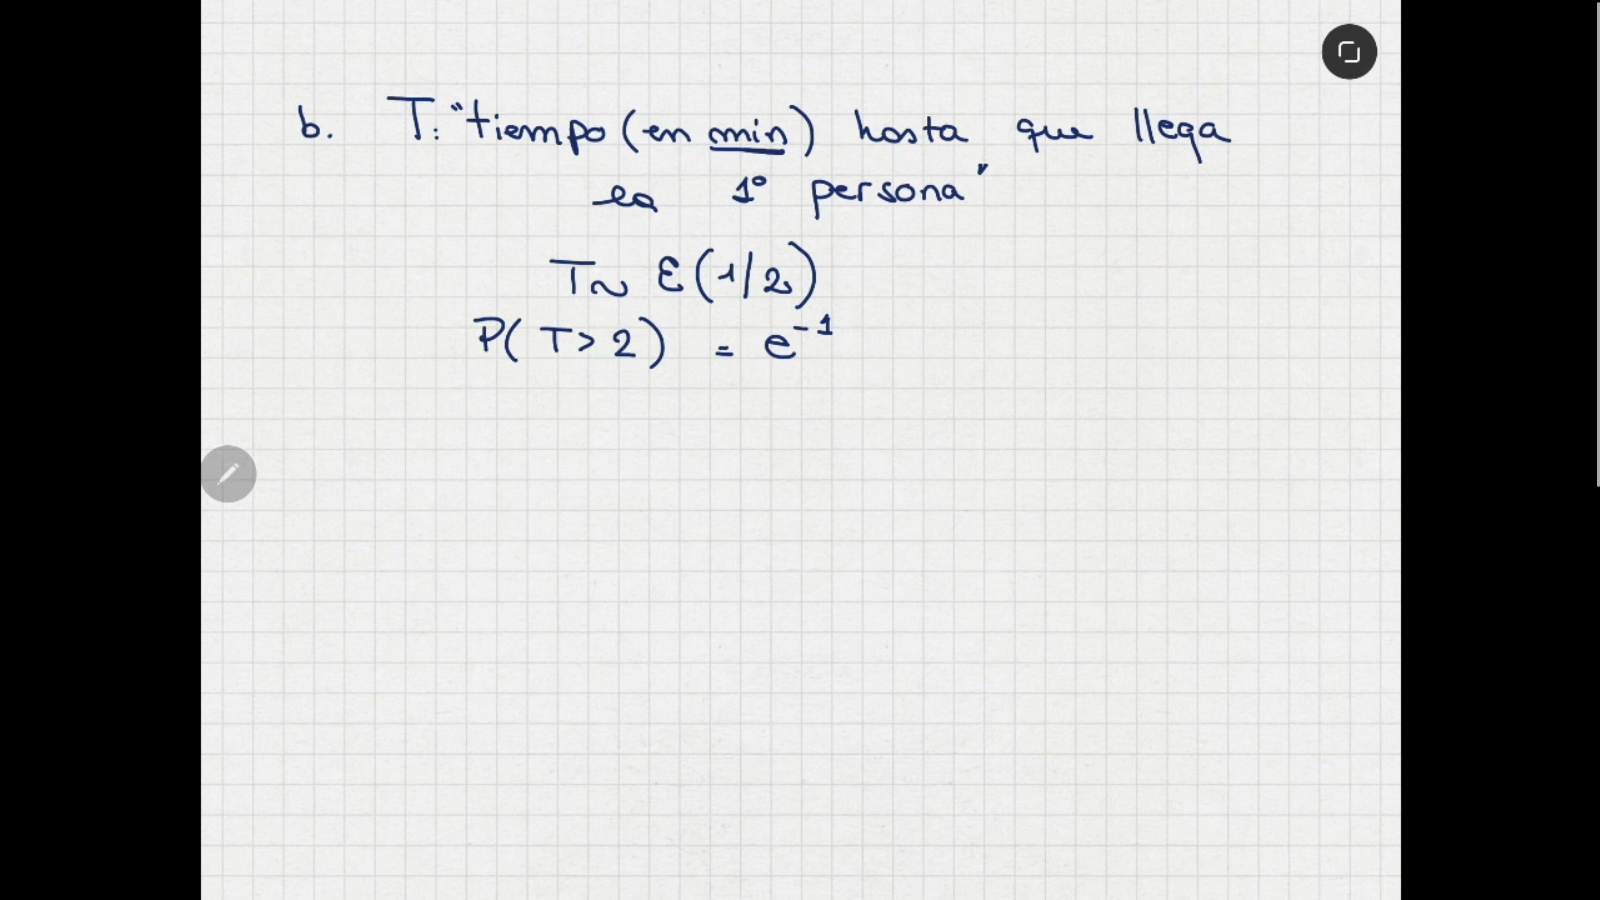 b. T: "tiempo (en min) hasta que llega
la 1º persona"
T ~ ε(1/2)
P( T > 2 ) = e^{-1}